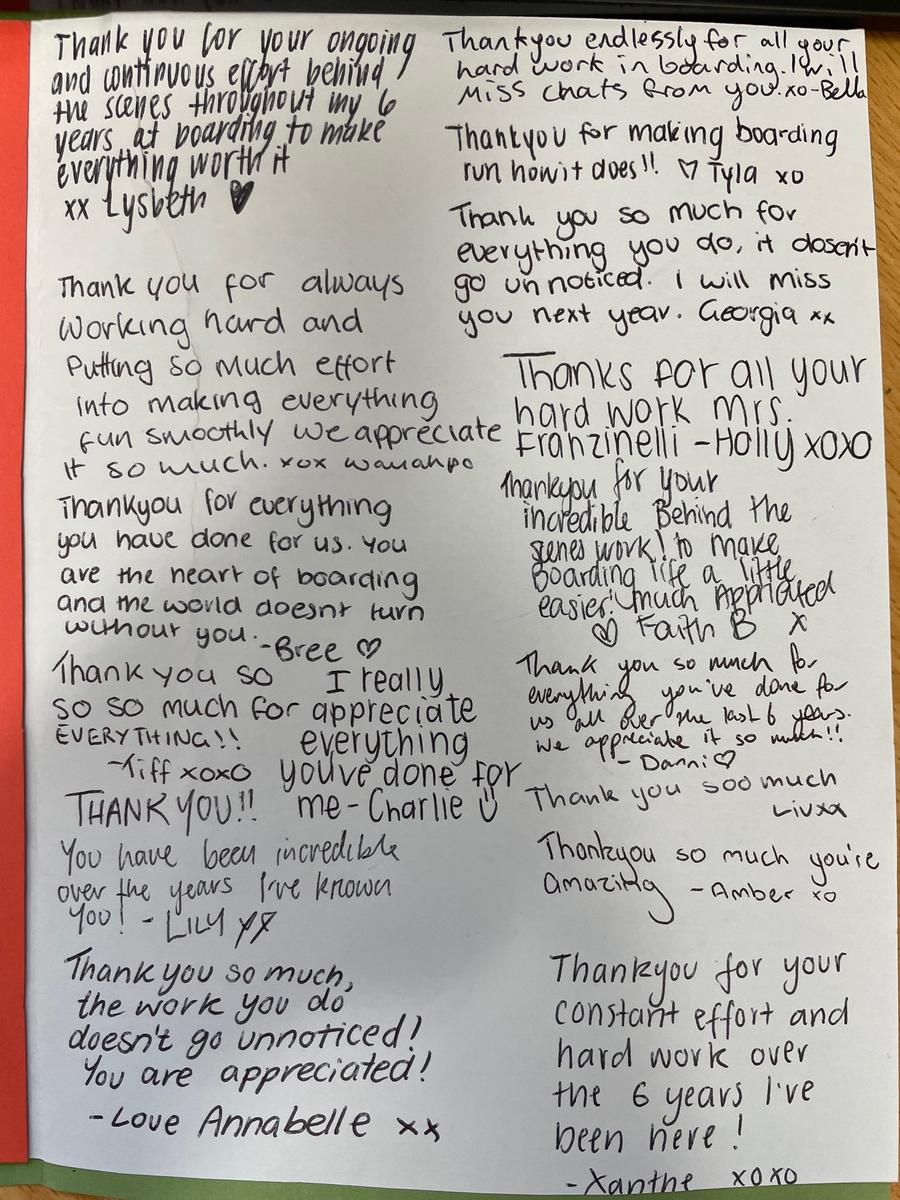 Thank you for your ongoing
and continuous effort behind
the scenes throughout my 6
years at boarding to make
everything worth it
xx Lysbeth ♥
Thank you for always
working hard and
Putting so much effort
into making everything
run smoothly we appreciate
it so much. xox
Thankyou for everything
you have done for us. You
are the heart of boarding
and the world doesnt turn
without you.
-Bree ♡
Thank you so
so so much for
EVERYTHING!!
-Tiff xoxo
I really
appreciate
everything
youve done for
me - Charlie
THANK YOU!!
You have been incredible
over the years I've known
you! - LILY xx
Thank you so much,
the work you do
doesn't go unnoticed!
You are appreciated!
- Love Annabelle xx
Thankyou endlessly for all your
hard work in boarding. I will
miss chats from you. xo-Bella
Thankyou for making boarding
run how it does!! ♡ Tyla xo
Thank you so much for
everything you do, it doesen't
go unnoticed. I will miss
you next year. Georgia xx
Thanks for all your
hard work Mrs.
Franzinelli - Holly xoxo
Thankyou for your
incredible Behind the
scenes work! to make
Boarding life a little
easier! much
♡ Faith B x
Thank you so much for
everything you've done for
us all over the last 6 years.
we appreciate it so much!!
- Danni ♡
Thank you soo much
Liv xx
Thankyou so much you're
amazing - Amber xo
Thankyou for your
constant effort and
hard work over
the 6 years I've
been here!
- Xanthe xoxo